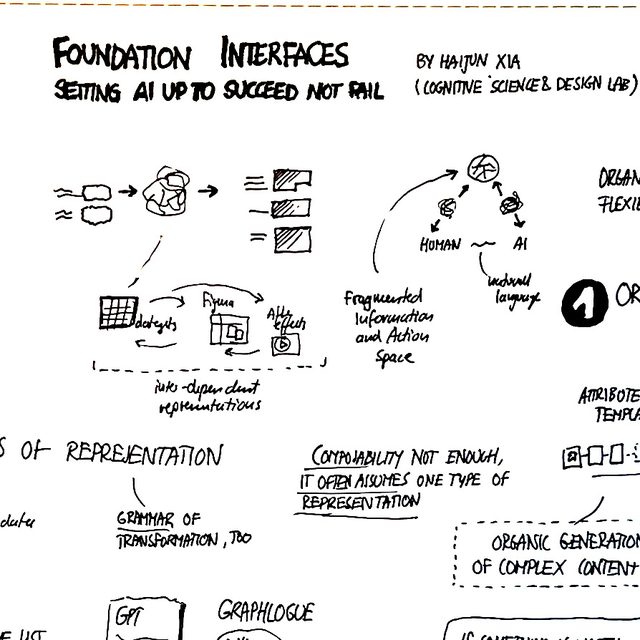 FOUNDATION INTERFACES
SETTING AI UP TO SUCCEED NOT FAIL
BY HAIJUN XIA
(COGNITIVE SCIENCE & DESIGN LAB)
HUMAN
AI
natural
language
Fragmented
Information
and Action
Space
ORGAN
FLEXI
1 OR
datasets
Figma
After
effects
inter-dependent
representations
S OF REPRESENTATION
GRAMMAR OF
TRANSFORMATION, TOO
COMPOSABILITY NOT ENOUGH,
IT OFTEN ASSUMES ONE TYPE OF
REPRESENTATION
ATTRIBUTE
TEMPLA
ORGANIC GENERATION
OF COMPLEX CONTENT
GPT
GRAPHLOGUE